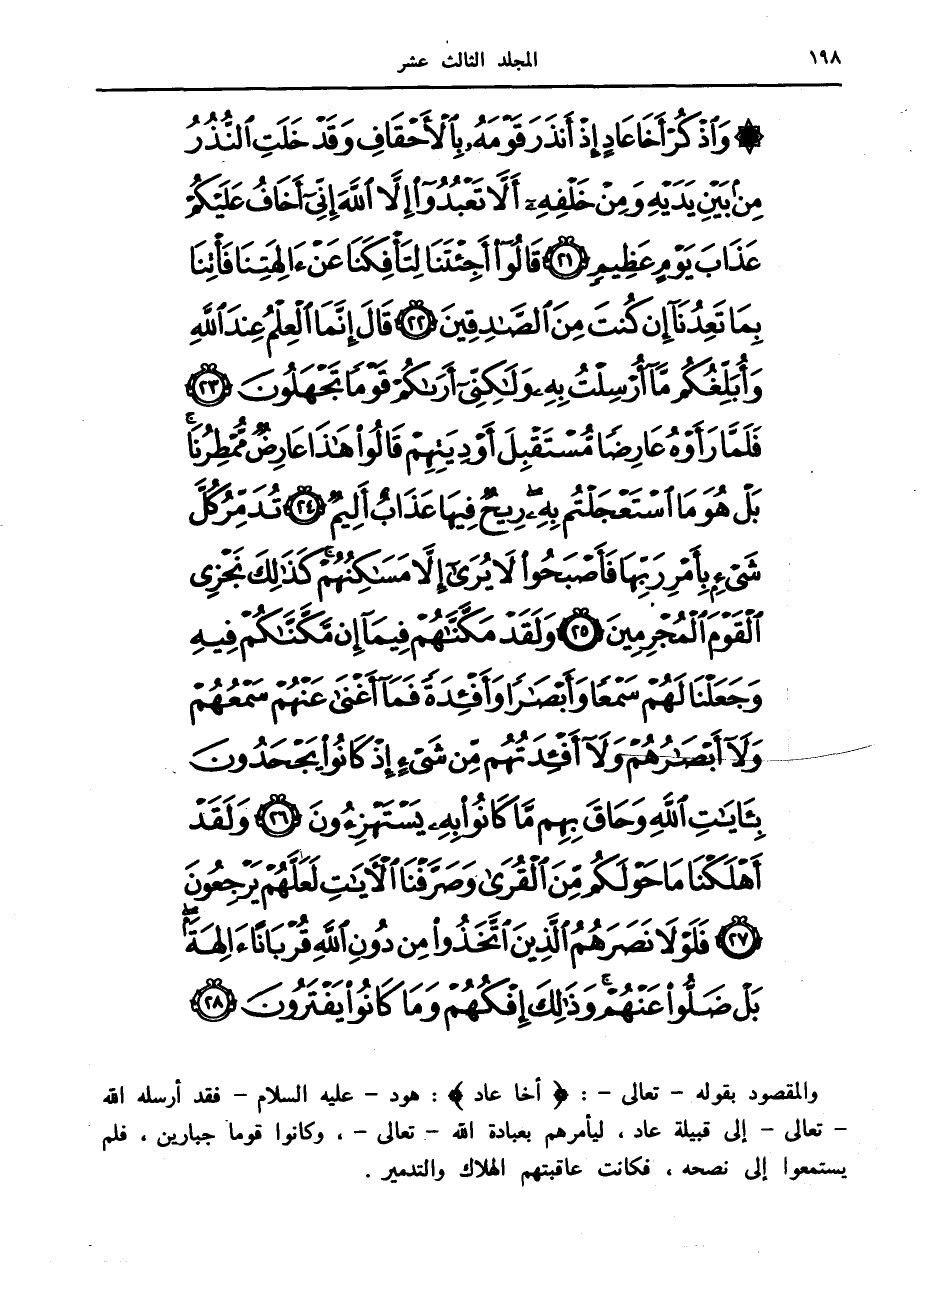 ١٩٨
المجلد الثالث عشر
۞ وَٱذْكُرْ أَخَا عَادٍ إِذْ أَنذَرَ قَوْمَهُۥ بِٱلْأَحْقَافِ وَقَدْ خَلَتِ ٱلنُّذُرُ
مِنۢ بَيْنِ يَدَيْهِ وَمِنْ خَلْفِهِۦٓ أَلَّا تَعْبُدُوٓا۟ إِلَّا ٱللَّهَ إِنِّىٓ أَخَافُ عَلَيْكُمْ
عَذَابَ يَوْمٍ عَظِيمٍ ٢١ قَالُوٓا۟ أَجِئْتَنَا لِتَأْفِكَنَا عَنْ ءَالِهَتِنَا فَأْتِنَا
بِمَا تَعِدُنَآ إِن كُنتَ مِنَ ٱلصَّـٰدِقِينَ ٢٢ قَالَ إِنَّمَا ٱلْعِلْمُ عِندَ ٱللَّهِ
وَأُبَلِّغُكُم مَّآ أُرْسِلْتُ بِهِۦ وَلَـٰكِنِّىٓ أَرَىٰكُمْ قَوْمًا تَجْهَلُونَ ٢٣
فَلَمَّا رَأَوْهُ عَارِضًا مُّسْتَقْبِلَ أَوْدِيَتِهِمْ قَالُوا۟ هَـٰذَا عَارِضٌ مُّمْطِرُنَا ۚ
بَلْ هُوَ مَا ٱسْتَعْجَلْتُم بِهِۦ ۖ رِيحٌ فِيهَا عَذَابٌ أَلِيمٌ ٢٤ تُدَمِّرُ كُلَّ
شَىْءٍۭ بِأَمْرِ رَبِّهَا فَأَصْبَحُوا۟ لَا يُرَىٰٓ إِلَّا مَسَـٰكِنُهُمْ ۚ كَذَٰلِكَ نَجْزِى
ٱلْقَوْمَ ٱلْمُجْرِمِينَ ٢٥ وَلَقَدْ مَكَّنَّـٰهُمْ فِيمَآ إِن مَّكَّنَّـٰكُمْ فِيهِ
وَجَعَلْنَا لَهُمْ سَمْعًا وَأَبْصَـٰرًا وَأَفْـِٔدَةً فَمَآ أَغْنَىٰ عَنْهُمْ سَمْعُهُمْ
وَلَآ أَبْصَـٰرُهُمْ وَلَآ أَفْـِٔدَتُهُم مِّن شَىْءٍ إِذْ كَانُوا۟ يَجْحَدُونَ
بِـَٔايَـٰتِ ٱللَّهِ وَحَاقَ بِهِم مَّا كَانُوا۟ بِهِۦ يَسْتَهْزِءُونَ ٢٦ وَلَقَدْ
أَهْلَكْنَا مَا حَوْلَكُم مِّنَ ٱلْقُرَىٰ وَصَرَّفْنَا ٱلْـَٔايَـٰتِ لَعَلَّهُمْ يَرْجِعُونَ
٢٧ فَلَوْلَا نَصَرَهُمُ ٱلَّذِينَ ٱتَّخَذُوا۟ مِن دُونِ ٱللَّهِ قُرْبَانًا ءَالِهَةًۢ ۖ
بَلْ ضَلُّوا۟ عَنْهُمْ ۚ وَذَٰلِكَ إِفْكُهُمْ وَمَا كَانُوا۟ يَفْتَرُونَ ٢٨
والمقصود بقوله – تعالى – : ﴿ أخا عاد ﴾ : هود – عليه السلام – فقد أرسله الله
– تعالى – إلى قبيلة عاد ، ليأمرهم بعبادة الله – تعالى – ، وكانوا قوما جبارين ، فلم
يستمعوا إلى نصحه ، فكانت عاقبتهم الهلاك والتدمير .